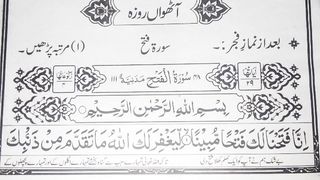 آٹھواں روزہ
بعد از نمازِ فجر:۔ سورۃ فتح (۱) مرتبہ پڑھیں۔
۴۸ سُوْرَةُ الْفَتْحِ مَدَنِيَّةٌ ۱۱۱
بِسْمِ اللّٰهِ الرَّحْمٰنِ الرَّحِيْمِ
اِنَّا فَتَحْنَا لَكَ فَتْحًا مُّبِيْنًا لِّيَغْفِرَ لَكَ اللّٰهُ مَا تَقَدَّمَ مِنْ ذَنْۢبِكَ